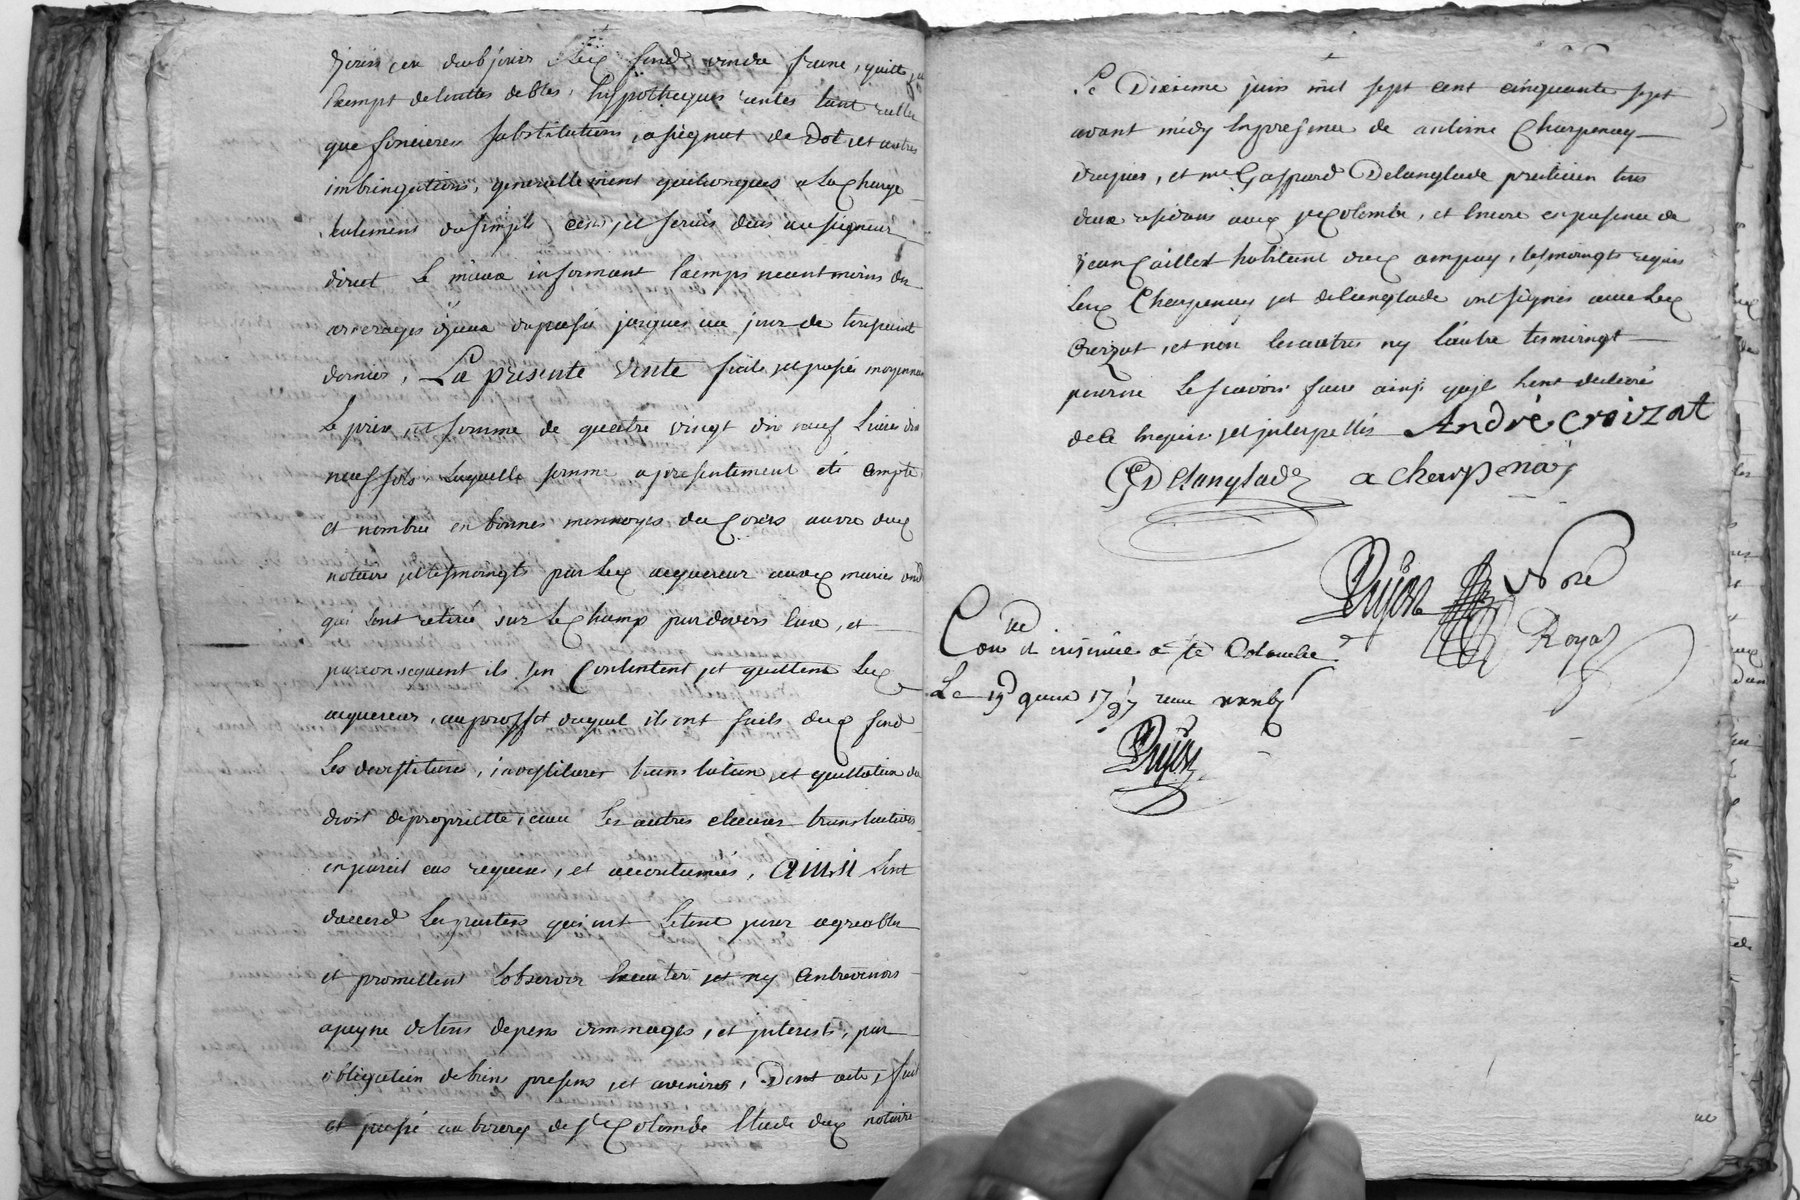 fond vendu franc, quitte
exempt de touttes debtes, hyppotheques rentes tant
que foncieres substitutions, assignat de Dot et autres
imbringations, generallement quelconques a la Charge
seulement du simple cens, et servis deus au seigneur
direct le mieux informant Exempt neantmoins des
arrerages d'iceux du passé jusques au jour de toussaint
dernier, La presente vente faite et passée moyennant
Le prix et somme de quatre vingt dix neuf Livres dix
neuf sols Laquelle somme a presentement été Compté
et nombré en bonnes monnoyes du Cours
notaire et tesmoingts par led acquereur marié
qui l'ont retiré sur Le Champ pardevers eux, et
par consequent ils s'en Contentent et quittent Led
acquereur, au proffit duquel ils ont faits dud fond
Les devestitures, investitures translation, et quittation du
droit de proprietté, avec Les autres clauses translatives
en pareil cas requises, et accoutumées, ainsi sont
d'accord Les parties qui ont Le tout pour agreable
et promettent L'observer Executer et n'y Contrevenir
a peyne de tous depens dommages, et interests, par
obligation de biens presens et avenirs, Dont acte, fait
et passé au bourg de Ste Colombe Etude dud notaire
Le Dixieme juin mil sept cent cinquante sept
avant midy En presence de antoine Charpenay
et me Gaspard Delanglade praticien tous
deux residans aud Ste Colombe, et Encore en presence de
jean Caillet habitant dud ampuy, tesmoingts requis
Leds Charpenay et delanglade ont signés avec Led
Croizat, et non Les autres ny l'autre tesmoingt
pour ne Le scavoir faire ainsy qu'jls L'ont declaré
de ce Enquis et interpellés André Croizat
G Delanglade a charpenay
Dujon Nore
Royal
Con et insinué a Ste Colombe
Le 19 1757
Dujon